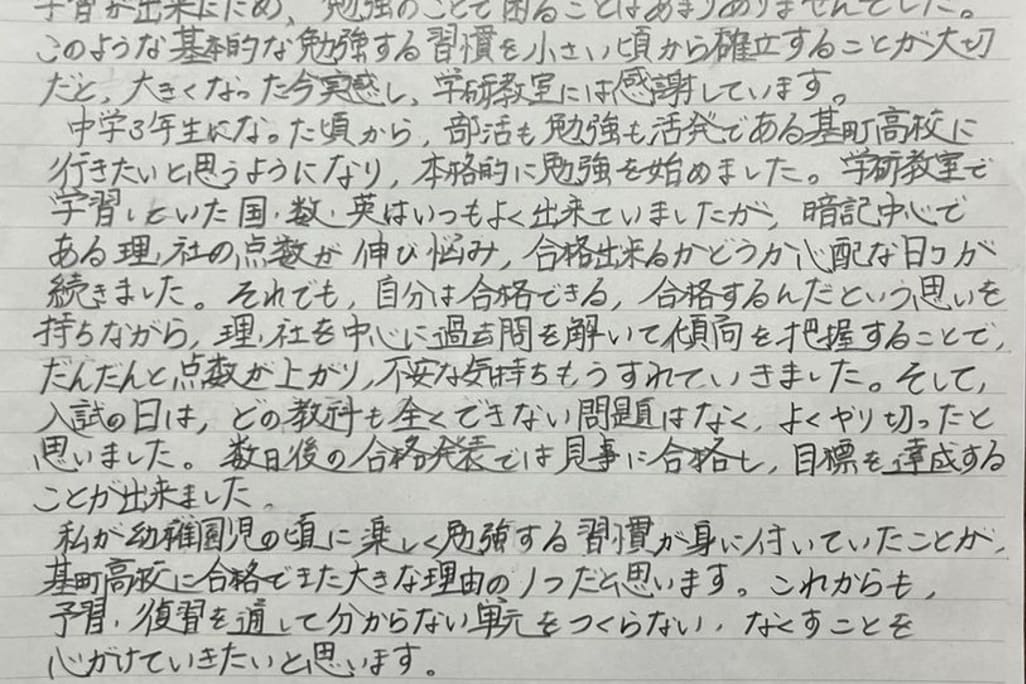 学習が出来にため、勉強のことで困ることはあまりありませんでした。
このような基本的な勉強する習慣を小さい頃から確立することが大切
だと、大きくなった今実感し、学研教室には感謝しています。
中学3年生になった頃から、部活も勉強も活発である基町高校に
行きたいと思うようになり、本格的に勉強を始めました。学研教室で
学習していた国・数・英はいつもよく出来ていましたが、暗記中心で
ある理・社の点数が伸び悩み、合格出来るかどうか心配な日々が
続きました。それでも、自分は合格できる、合格するんだという思いを
持ちながら、理・社を中心に過去問を解いて傾向を把握することで、
だんだんと点数が上がり、不安な気持ちもうすれていきました。そして、
入試の日は、どの教科も全くできない問題はなく、よくやり切ったと
思いました。数日後の合格発表では見事に合格し、目標を達成する
ことが出来ました。
私が幼稚園児の頃に楽しく勉強する習慣が身に付いていたことが、
基町高校に合格できた大きな理由の1つだと思います。これからも、
予習・復習を通して分からない単元をつくらない・なくすことを
心がけていきたいと思います。